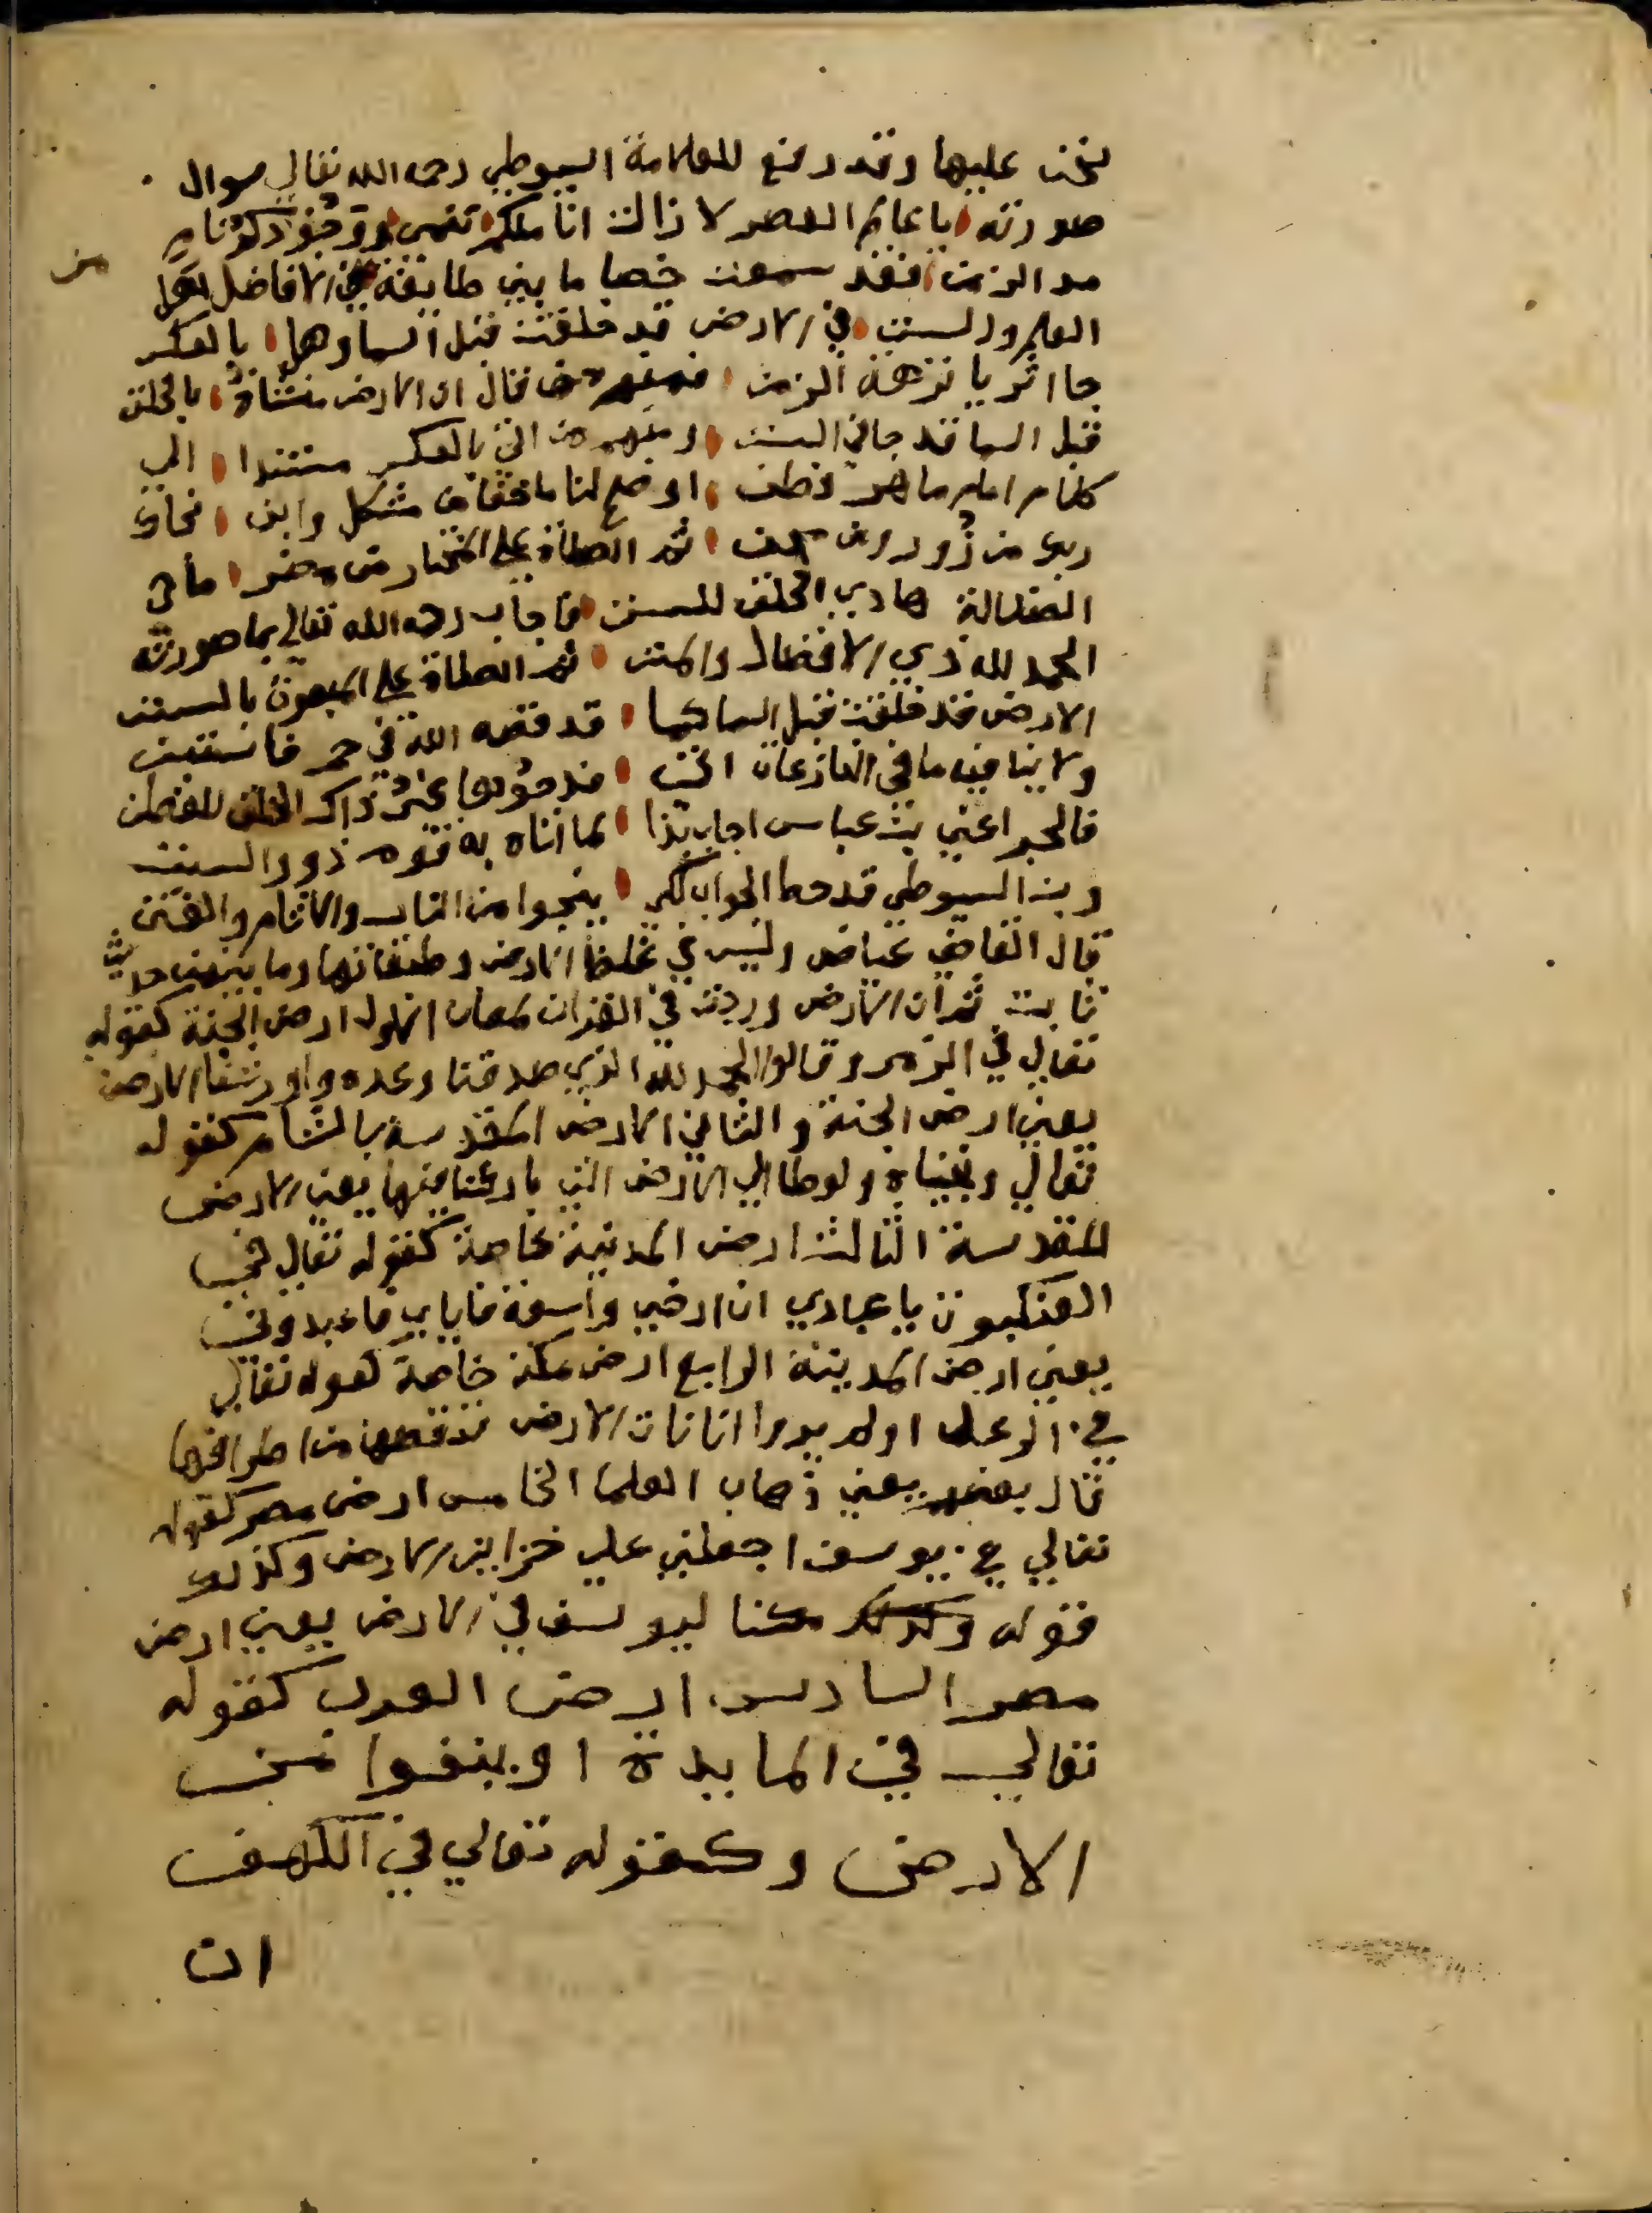 نحن عليها وقد رفع للعلامة السيوطي رحمه الله تعالي سوال
صورته يا عالم العصر لا زالت اناملكم تهمي وجودكم نام
مد الزمن فقد سمعت خصاما بين طايفة من الافاضل اهل
من
العلم واللسن في الارض قد خلقت قبل السما وهل بالعكس
جا اثر يا نزهة الزمن فمنهم من قال ان الارض منشاة بالخلق
قبل السما قد جا في السنن ومنهم من اتي بالعكس مستندا الي
كلام امام ماهر فطن اوضح لنا ما خفا من مشكل وابن نجاك
ربك من زور ومن محن ثم الصلاة علي المختار من مضر ماحي
الضلالة هادي الخلق للسنن فاجاب رحمه الله تعالي بما صورته
الحمد لله ذي الافضال والمنن ثم الصلاة علي المبعوث بالسنن
الارض قد خلقت قبل السما كما قد نصه الله في حم فاستبن
ولا ينافيه ما في النازعات اتي فدحوها غير ذاك الخلق للفطن
فالحبر اعني بن عباس اجاب بذا لما اتاه به قوم ذوو السنن
وبن السيوطي قد خط الجواب لكي ينجوا من النار والاثام والفتن
قال القاضي عياض وليس في غلظ الارض وطبقاتها وما بينهن حديث
ثابت ثم ان الارض وردت في القران لمعان الاول ارض الجنة كقوله
تعالي في الزمر وقالوا الحمد لله الذي صدقنا وعده واورثنا الارض
يعني ارض الجنة والثاني الارض المقدسة بالشام كقوله
تعالي ونجيناه ولوطا الي الارض التي باركنا فيها يعني الارض
المقدسة الثالث ارض المدينة خاصة كقوله تعالي في
العنكبوت يا عبادي ان ارضي واسعة فاياي فاعبدون
يعني ارض المدينة الرابع ارض مكة خاصة كقوله تعالي
في الرعد اولم يروا انا نات الارض ننقصها من اطرافها
قال بعضهم يعني ذهاب العلما الخامس ارض مصر كقوله
تعالي في يوسف اجعلني علي خزاين الارض وكذلك
قوله وكذلك مكنا ليوسف في الارض يعني ارض
مصر السادس ارض العرب كقوله
تعالي في المايدة او ينفوا من
الارض وكقوله تعالي في الكهف
ان